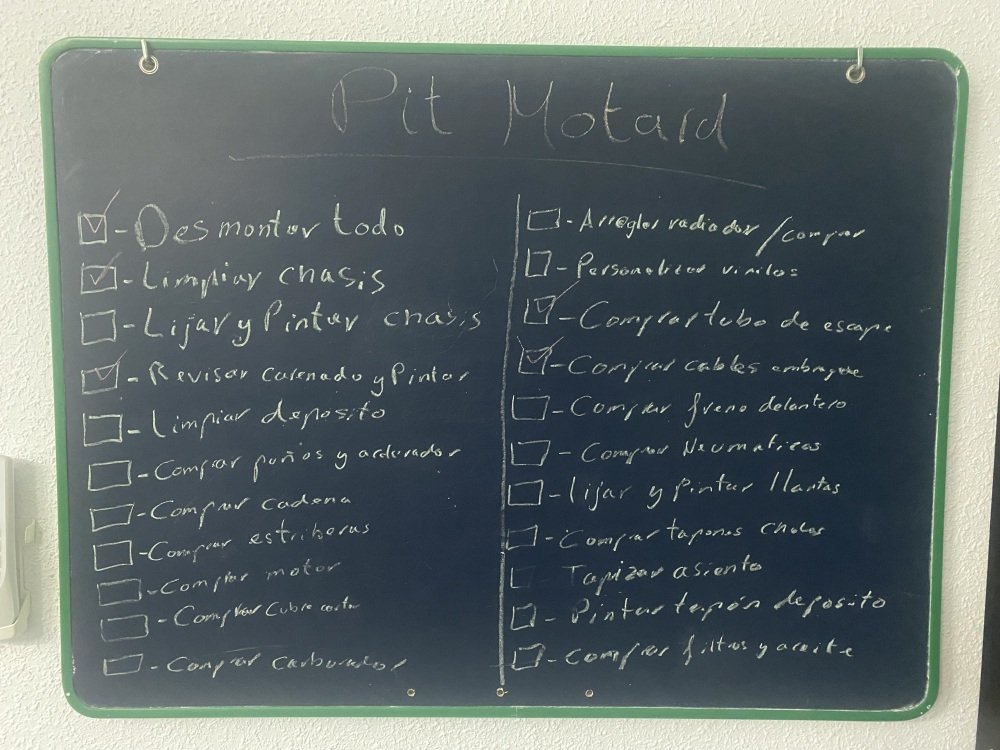 Pit Motard
- Desmontar todo
- Limpiar chasis
- Lijar y Pintar chasis
- Revisar carenado y Pintar
- Limpiar deposito
- Comprar puños y acelerador
- Comprar cadena
- Comprar estriberas
- Comprar motor
- Comprar Cubre
- Comprar carburador
- Arreglar radiador / comprar
- Personalizar vinilos
- Comprar tubo de escape
- Comprar cables embrague
- Comprar freno delantero
- Comprar Neumaticos
- lijar y pintar llantas
- Comprar tapones
Tapizar asiento
- Pintar tapón deposito
- Comprar filtros y aceite